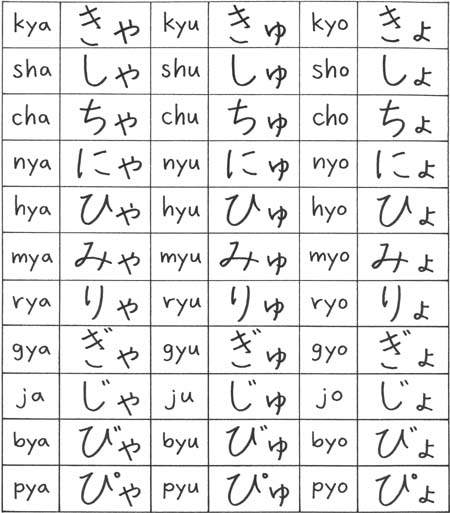 kya きゃ kyu きゅ kyo きょ
sha しゃ shu しゅ sho しょ
cha ちゃ chu ちゅ cho ちょ
nya にゃ nyu にゅ nyo にょ
hya ひゃ hyu ひゅ hyo ひょ
mya みゃ myu みゅ myo みょ
rya りゃ ryu りゅ ryo りょ
gya ぎゃ gyu ぎゅ gyo ぎょ
ja じゃ ju じゅ jo じょ
bya びゃ byu びゅ byo びょ
pya ぴゃ pyu ぴゅ pyo ぴょ